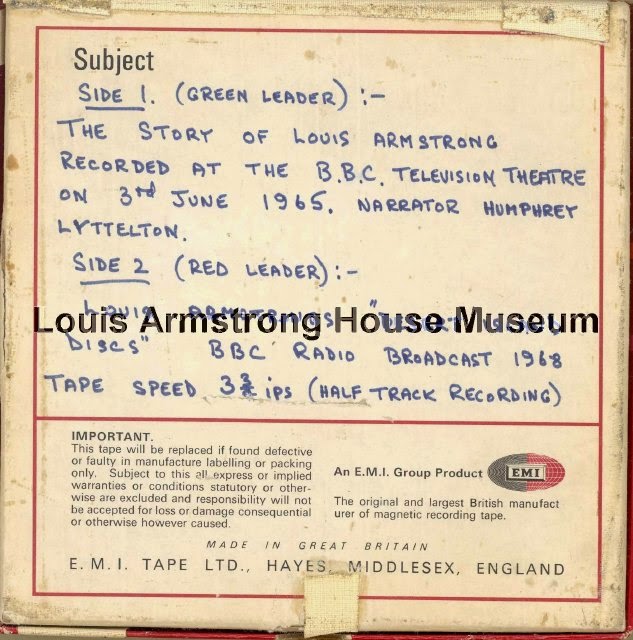 Subject
SIDE 1. (GREEN LEADER) :-
THE STORY OF LOUIS ARMSTRONG
RECORDED AT THE B.B.C. TELEVISION THEATRE
ON 3rd JUNE 1965. NARRATOR HUMPHREY
LYTTELTON.
SIDE 2 (RED LEADER) :-
LOUIS ARMSTRONG'S "DESERT ISLAND
Louis Armstrong House Museum
DISCS" BBC RADIO BROADCAST 1968
TAPE SPEED 3¾ ips (HALF TRACK RECORDING)
IMPORTANT.
This tape will be replaced if found defective
or faulty in manufacture labelling or packing
only. Subject to this all express or implied
warranties or conditions statutory or other-
wise are excluded and responsibility will not
be accepted for loss or damage consequential
or otherwise however caused.
An E.M.I. Group Product EMI
The original and largest British manufact
urer of magnetic recording tape.
MADE IN GREAT BRITAIN
E.M.I. TAPE LTD., HAYES, MIDDLESEX, ENGLAND